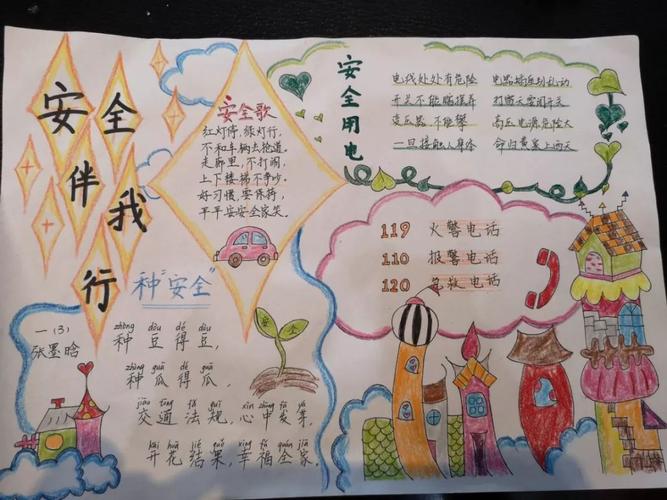 安全
伴我
行
安全歌
红灯停,绿灯行,
不和车辆去抢道。
走廊里,不打闹,
上下楼梯不争吵。
好习惯,要保持,
平平安安全家笑。
安全用电
电线处处有危险 电器插座别乱动
开关不能瞎摸弄 打雷天要闭开关
变压器不能攀 高压电源危险大
一旦接触人身体 命归黄泉上西天
119 火警电话
110 报警电话
120 急救电话
种"安全"
一(3)
张墨晗
zhòng dòu dé dòu
种豆得豆,
zhòng guā dé guā
种瓜得瓜,
jiāo tōng fǎ guī xīn zhōng fā yá
交通法规,心中发芽,
kāi huā jié guǒ xìng fú quán jiā
开花结果,幸福全家.